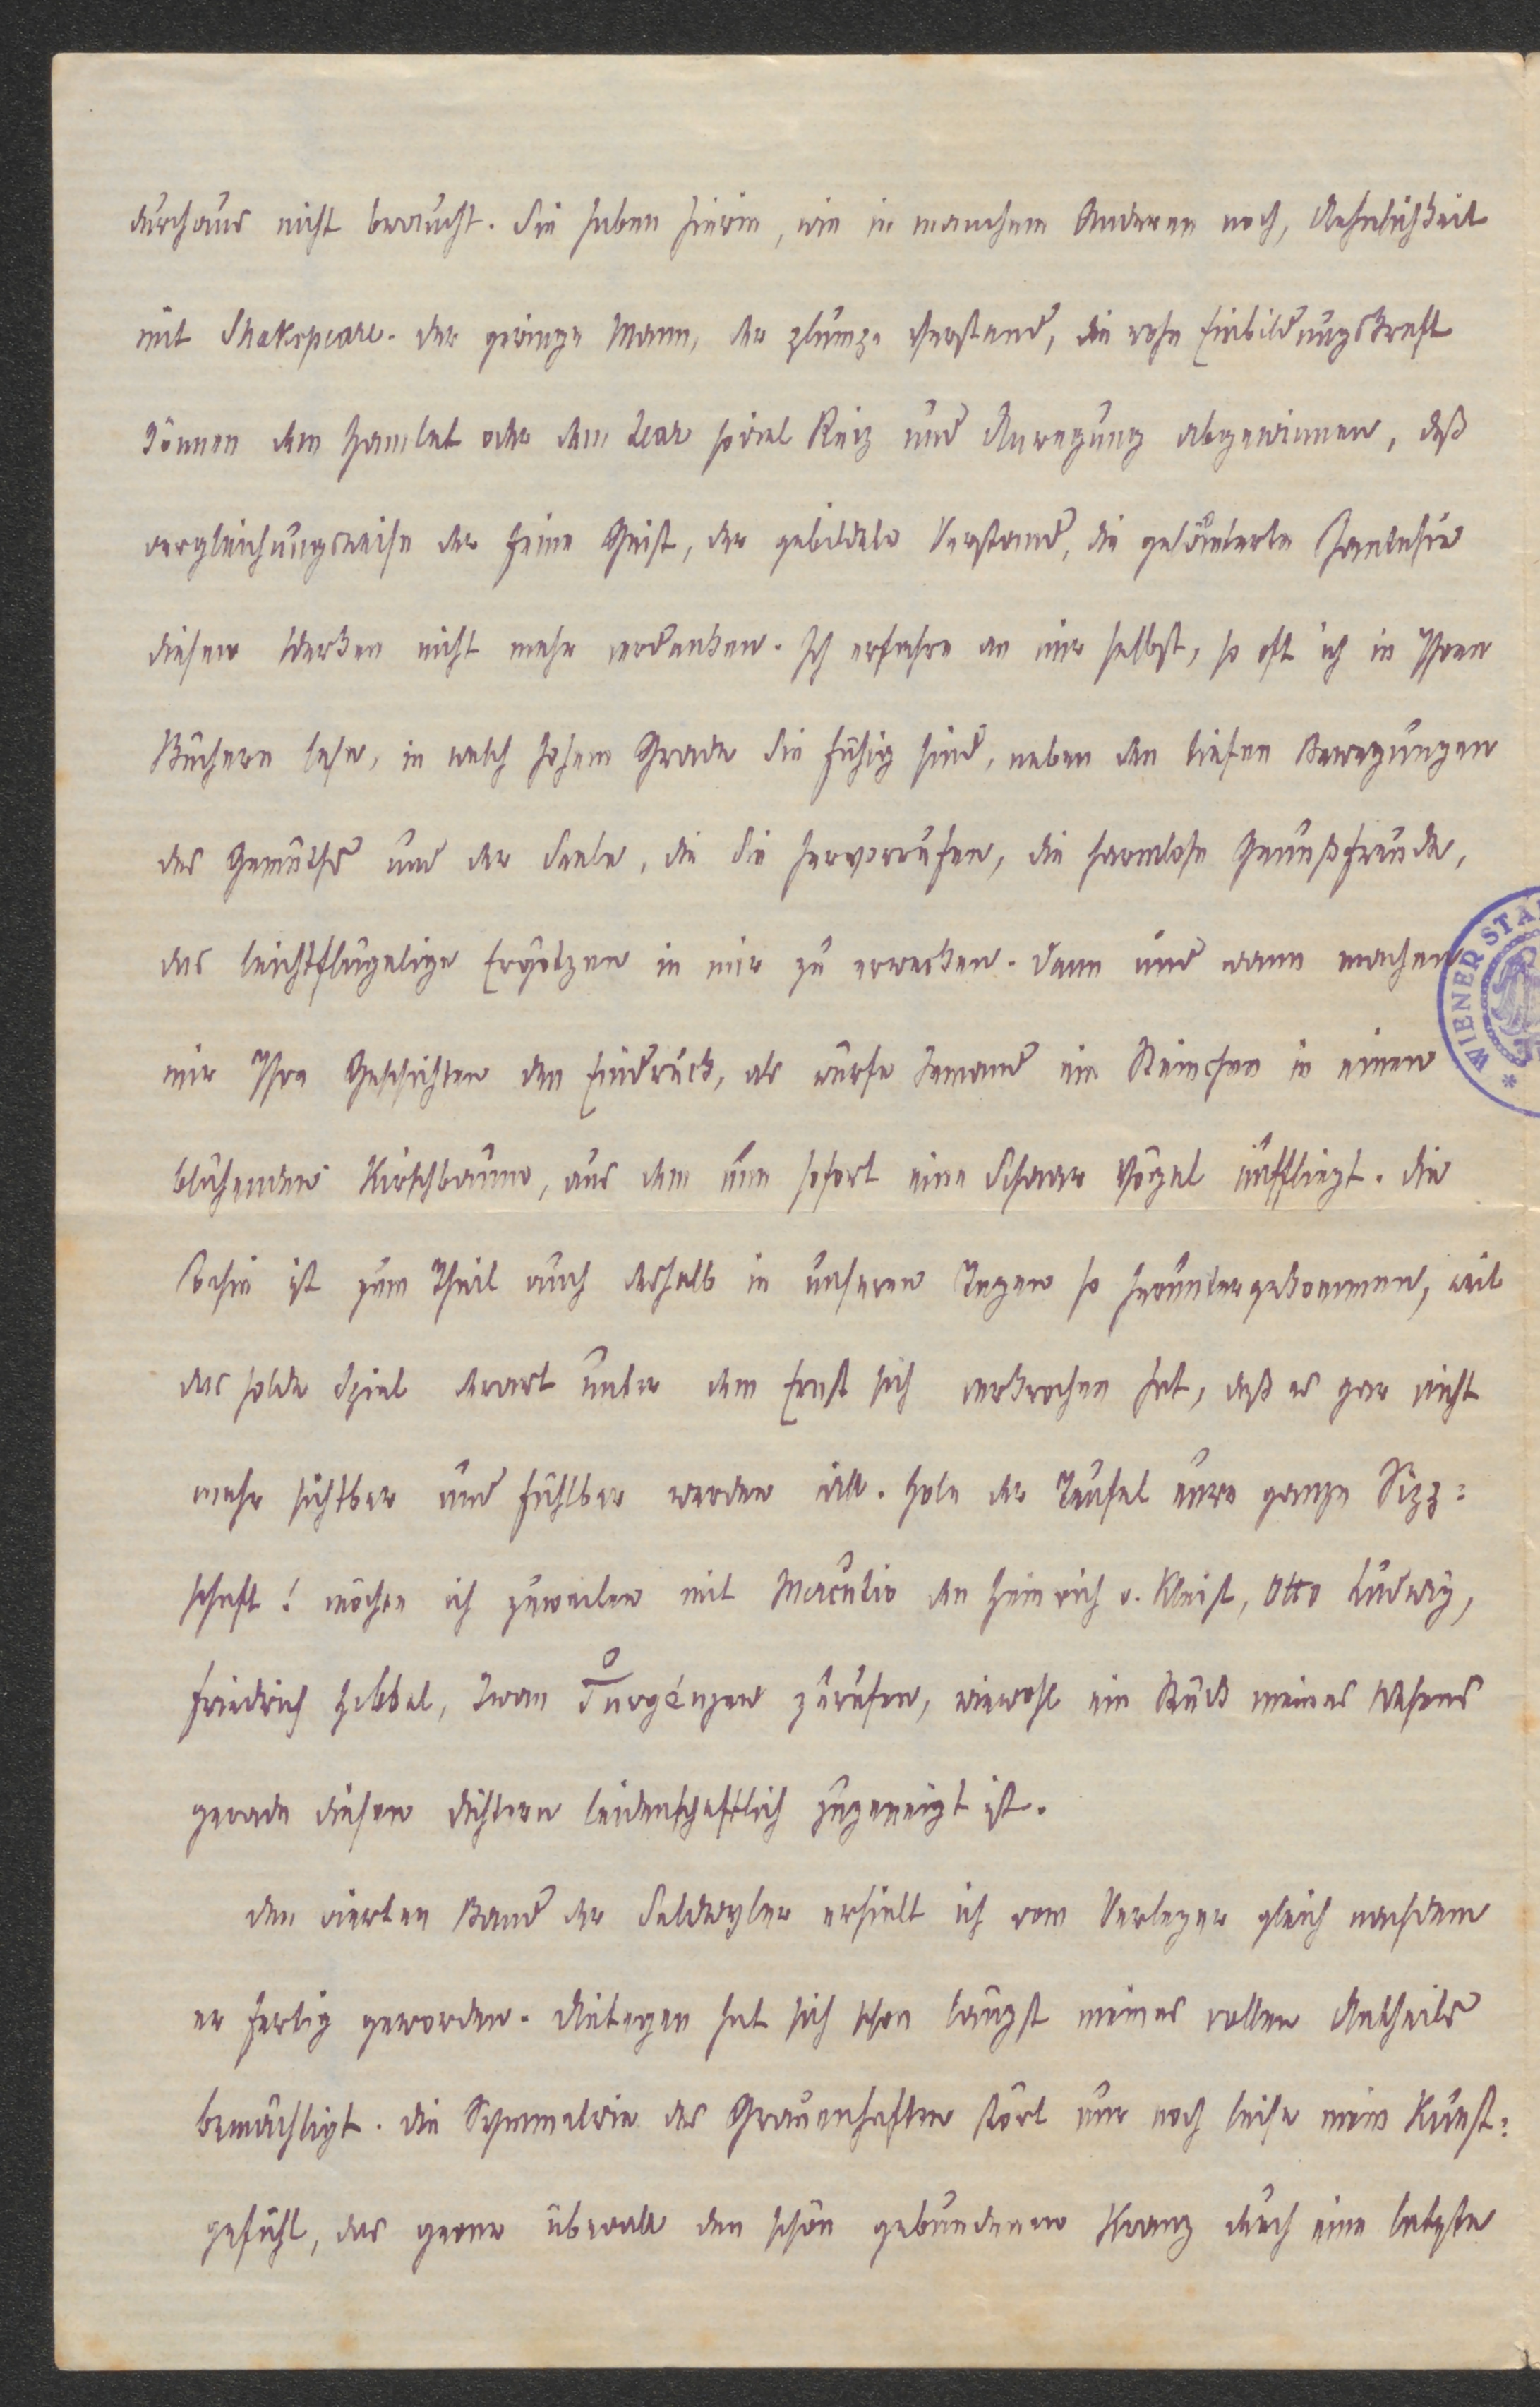 durchaus nicht braucht. Sie haben hierin, wie in manchem Anderen noch, Aehnlichkeit
mit Shakspeare. Der geringe Mann, der plumpe Verstand, die rohe Einbildungskraft
können dem Hamlet oder dem Lear soviel Reiz und Anregung abgewinnen, daß
vergleichungsweise der feine Geist, der gebildete Verstand, die geläuterte Fantasie
diesen Werken nicht mehr verdanken. Ich erfahre an mir selbst, so oft ich in Ihren
Büchern lese, in welch hohem Grade Sie fähig sind, neben den tiefen Bewegungen
des Gemüths und der Seele, die Sie hervorrufen, die harmlose Genußfreude,
das leichtflügelige Ergötzen in mir zu erwecken. Dann und wann machen
mir Ihre Geschichten den Eindruck, als würfe Jemand ein Steinchen in einen
blühenden Kirschbaum, aus dem nun sofort eine Schaar Vögel auffliegt. Die
Poesie ist zum Theil auch deshalb in unseren Tagen so heruntergekommen, weil
das holde Spiel derart unter dem Ernst sich verkrochen hat, daß es gar nicht
mehr sichtbar und fühlbar werden will. Hole der Teufel eure ganze Sipp=
schaft! möchte ich zuweilen mit Mercutio den Heinrich v. Kleist, Otto Ludwig,
Friedrich Hebbel, Iwan Turgénjew zurufen, wiewohl ein Stück meines Wesens
gerade diesen Dichtern leidenschaftlich zugeneigt ist.
Den vierten Band der Seldwyler erhielt ich vom Verleger gleich nachdem
er fertig geworden. Dietegen hat sich schon längst meines vollen Antheils
bemächtigt. Die Symmetrie des Grauenhaften stört nur noch leise mein Kunst=
gefühl, das gerne überall den schön gebundenen Kranz durch eine letzte
* WIENER STA